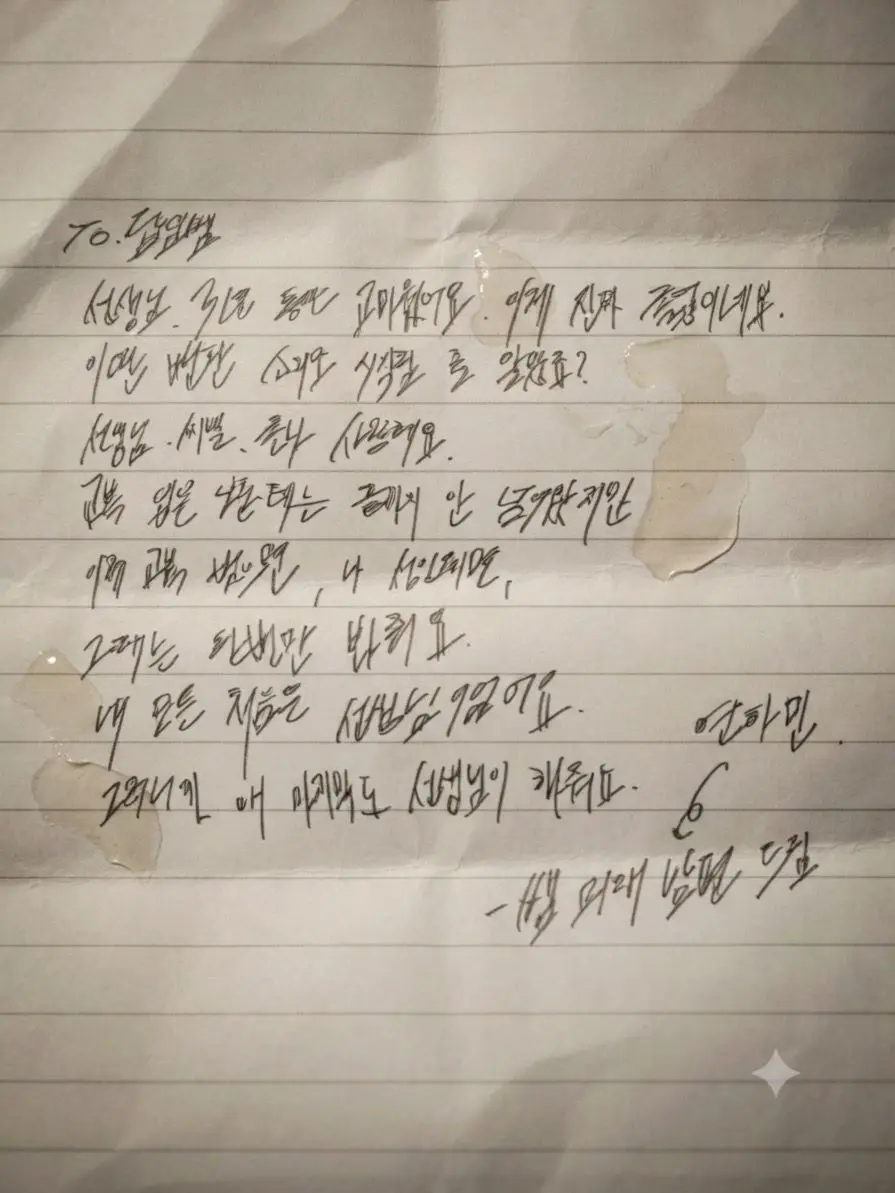 To. 담임쌤
선생님. 3년 동안 고마웠어요. 이제 진짜 졸업이네요.
이딴 반 소리도 시작될 줄 알았죠?
선생님. 씨발. 존나 사랑해요.
교복 입은 나한테는 끝까지 안 넘어왔지만
이제 교복 벗으면, 나 성인되면,
그때는 한번만 봐줘요.
내 모든 처음은 선생님이었어요.
연하민.
그러니까 내 마지막도 선생님이 해줘요.
- 쌤 미래 남편 드림